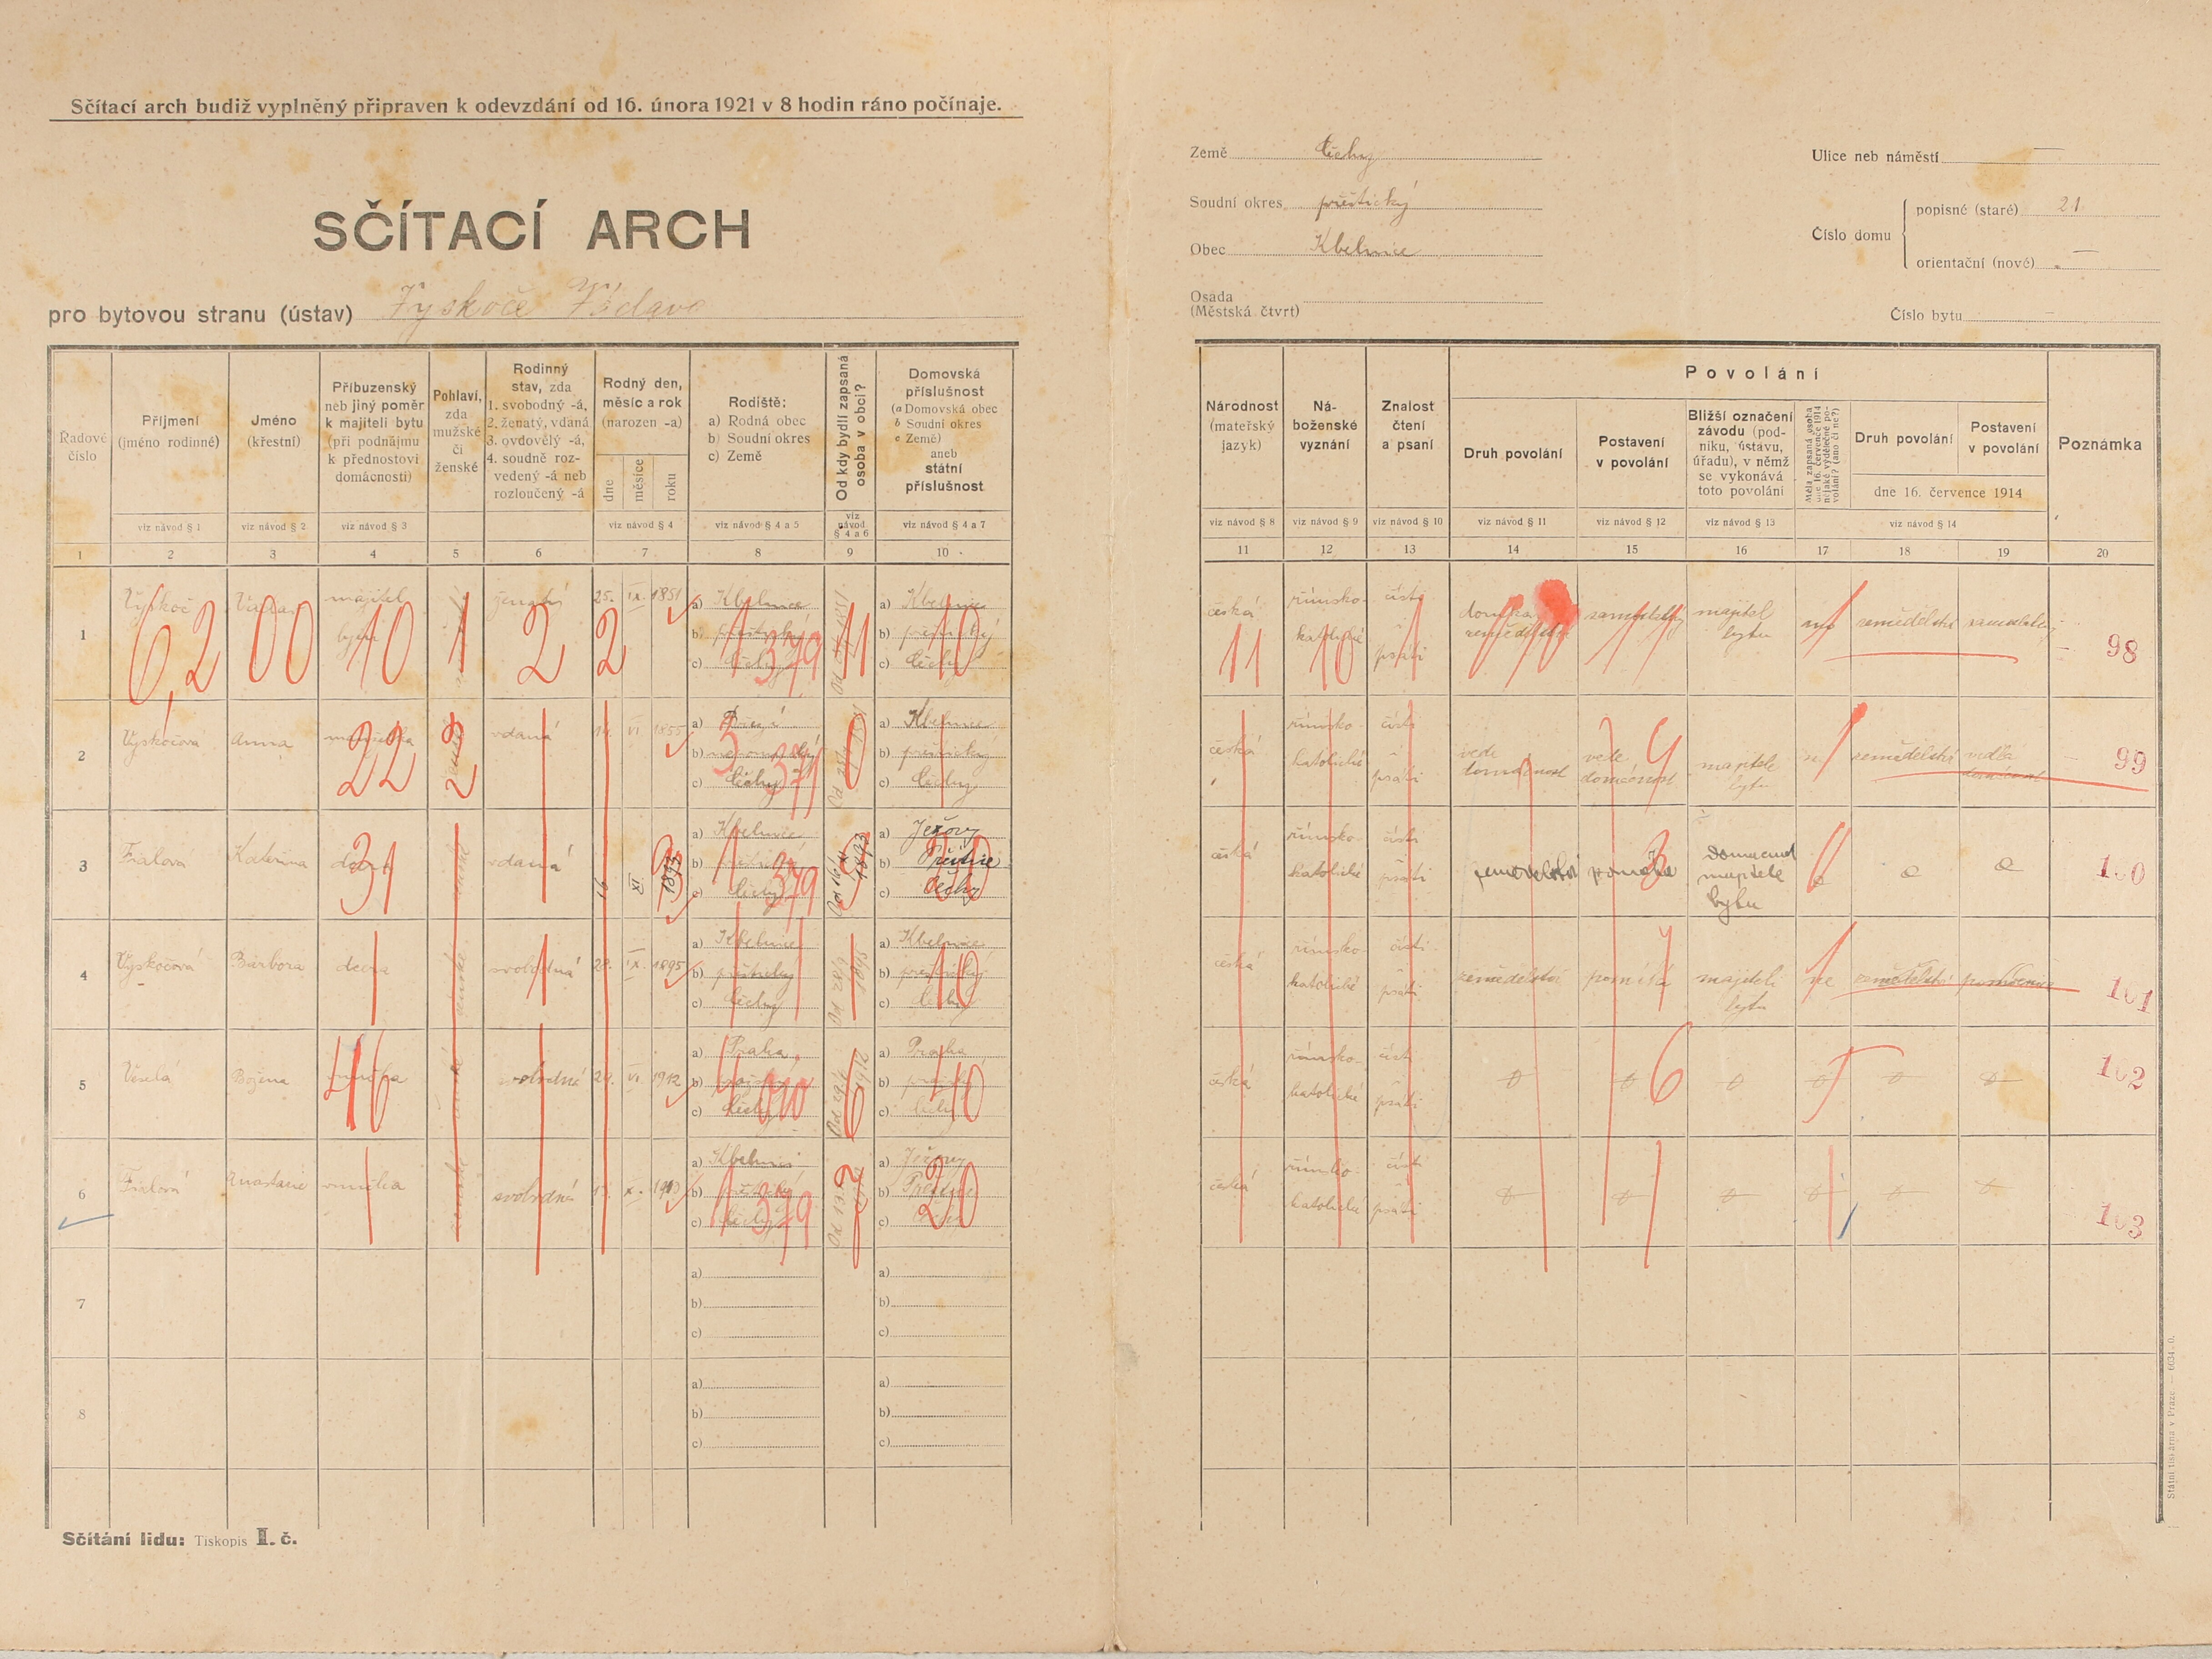 Sčítací arch budiž vyplněný připraven k odevzdání od 16. února 1921 v 8 hodin ráno počínaje.
SČÍTACÍ ARCH
pro bytovou stranu (ústav) Vyskoče Václava
Země Čechy
Soudní okres přeštický
Obec Kbelnice
Osada
(Městská čtvrt)
Ulice neb náměstí —
Číslo domu
popisné (staré) 21
orientační (nové) —
Číslo bytu —
Řadové
číslo
Příjmení
(jméno rodinné)
viz návod § 1
Jméno
(křestní)
viz návod § 2
Příbuzenský
neb jiný poměr
k majiteli bytu
(při podnájmu
k přednostovi
domácnosti)
viz návod § 3
Pohlaví,
zda
mužské
či
ženské
Rodinný
stav, zda
1. svobodný -á,
2. ženatý, vdaná
3. ovdovělý -á,
4. soudně roz-
vedený -á neb
rozloučený -á
Rodný den,
měsíc a rok
(narozen -a)
dne
měsíce
roku
viz návod § 4
Rodiště:
a) Rodná obec
b) Soudní okres
c) Země
viz návod § 4 a 5
Od kdy bydlí zapsaná
osoba v obci?
viz
návod
§ 4 a 6
Domovská
příslušnost
(a Domovská obec
b Soudní okres
c Země)
aneb
státní
příslušnost
viz návod § 4 a 7
Národnost
(mateřský
jazyk)
viz návod § 8
Ná-
boženské
vyznání
viz návod § 9
Znalost
čtení
a psaní
viz návod § 10
Povolání
Druh povolání
viz návod § 11
Postavení
v povolání
viz návod § 12
Bližší označení
závodu (pod-
niku, ústavu,
úřadu), v němž
se vykonává
toto povolání
viz návod § 13
Měla zapsaná osoba
dne 16. července 1914
nějaké výdělečné po-
volání? (ano či ne?)
Druh povolání
Postavení
v povolání
dne 16. července 1914
viz návod § 14
Poznámka
1 2 3 4 5 6 7 8 9 10 11 12 13 14 15 16 17 18 19 20
1 Vyskoč Václav majitel bytu ženatý 25. IX. 1851
a) Kbelnice
b) přeštický
c) Čechy
a) Kbelnice
b) přeštický
c) Čechy
česká římsko-katolické čísti psáti samostatný majitel bytu ano zemědělství samostatný 98
6,2 00 10 1 2 2 1 379 11 10 11 10 1
2 Vyskočová Anna manželka ženské vdaná VI 1855
b) nepomucký
c) Čechy
a) Kbelnice
b) přeštický
c) Čechy
česká římsko-katolické čísti psáti vede domácnost vede domácnost majitele bytu zemědělství vedla domácnost 99
22 2
3 Fialová Kateřina dcera vdaná 16 XI 1893
a) Kbelnice
b) přeštický
c) Čechy
a) Ježovy
b) Přeštice
c) Čechy
česká římsko-katolické čísti psáti zemědělství pomáhá domácnost majitele bytu 100
31 1 379 3
4 Vyskočová Barbora dcera ženské svobodná 28. IX. 1895
a) Kbelnice
b) přeštický
c) Čechy
a) Kbelnice
b) přeštický
c) Čechy
česká římsko-katolické čísti psáti zemědělství pomáhá majiteli bytu ne zemědělství 101
10
5 Veselá Božena vnučka ženské svobodná VI 1912
a) Praha
c) Čechy
a) Praha
c) Čechy
česká římsko-katolické čísti psáti 102
6 10 6
6 Fialová Anastazie vnučka ženské svobodná X. 1913
a) Kbelnice
b) přeštický
c) Čechy
a) Ježovy
b) Přeštice
c) Čechy
česká římsko-katolické čísti psáti 103
1 379 2 20
7
a)
b)
c)
a)
b)
c)
8
a)
b)
c)
a)
b)
c)
Sčítání lidu: Tiskopis I. č.
Státní tiskárna v Praze. — 6034-20.